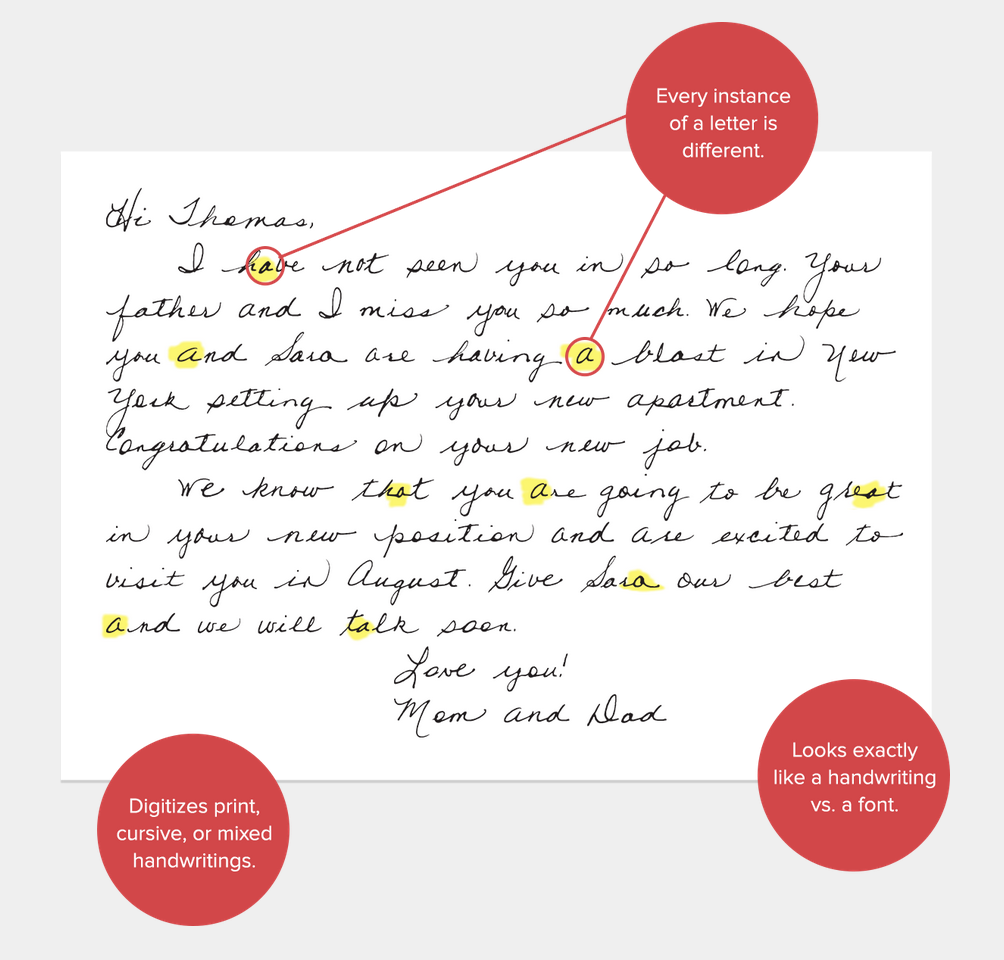 Every instance
of a letter is
different.
Hi Thomas,
I have not seen you in so long. Your
father and I miss you so much. We hope
you and Sara are having a blast in New
York setting up your new apartment.
Congratulations on your new job.
We know that you are going to be great
in your new position and are excited to
visit you in August. Give Sara our best
and we will talk soon.
Love you!
Mom and Dad
Looks exactly
like a handwriting
vs. a font.
Digitizes print,
cursive, or mixed
handwritings.